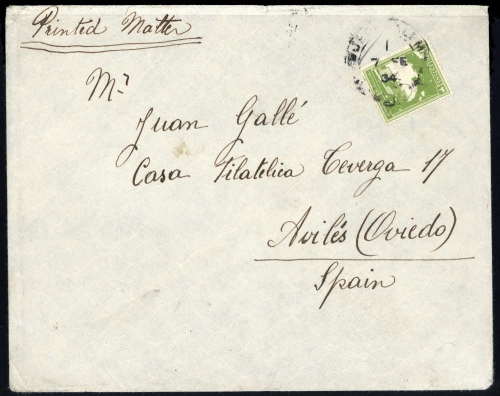 Printed Matter
1
7 FE
34
Mr
Juan Gallé
Casa Filatelica Teverga 17
Avilés (Oviedo)
Spain